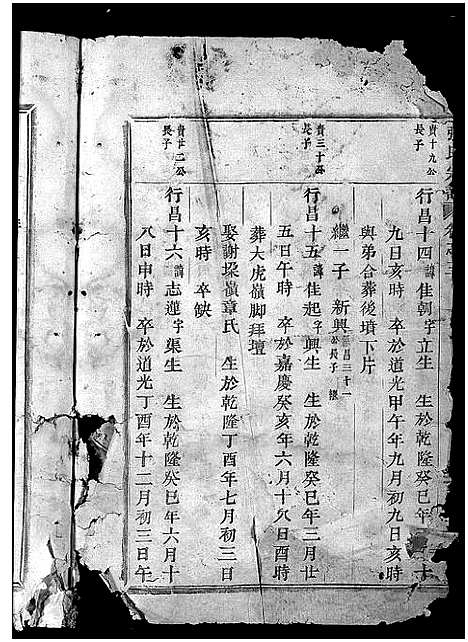 貴十九公
長子
行昌十四諱佳朝字立生 生於乾隆癸巳年 十
九日亥時 卒於道光甲午年九月初九日亥時
與弟合葬後墳下片
繼一子 新興
貴三十公
長子
行昌十五諱佳起字興生 生於乾隆癸巳年三月廿
五日午時 卒於嘉慶癸亥年六月十八日酉時
葬大虎嶺脚拜壇
娶謝墺嶺章氏 生於乾隆丁酉年七月初三日
亥時 卒缺
貴廿二公
長子
行昌十六諱志蓮字渠生 生於乾隆癸巳年六月十
八日申時 卒於道光丁酉年十二月初三日午